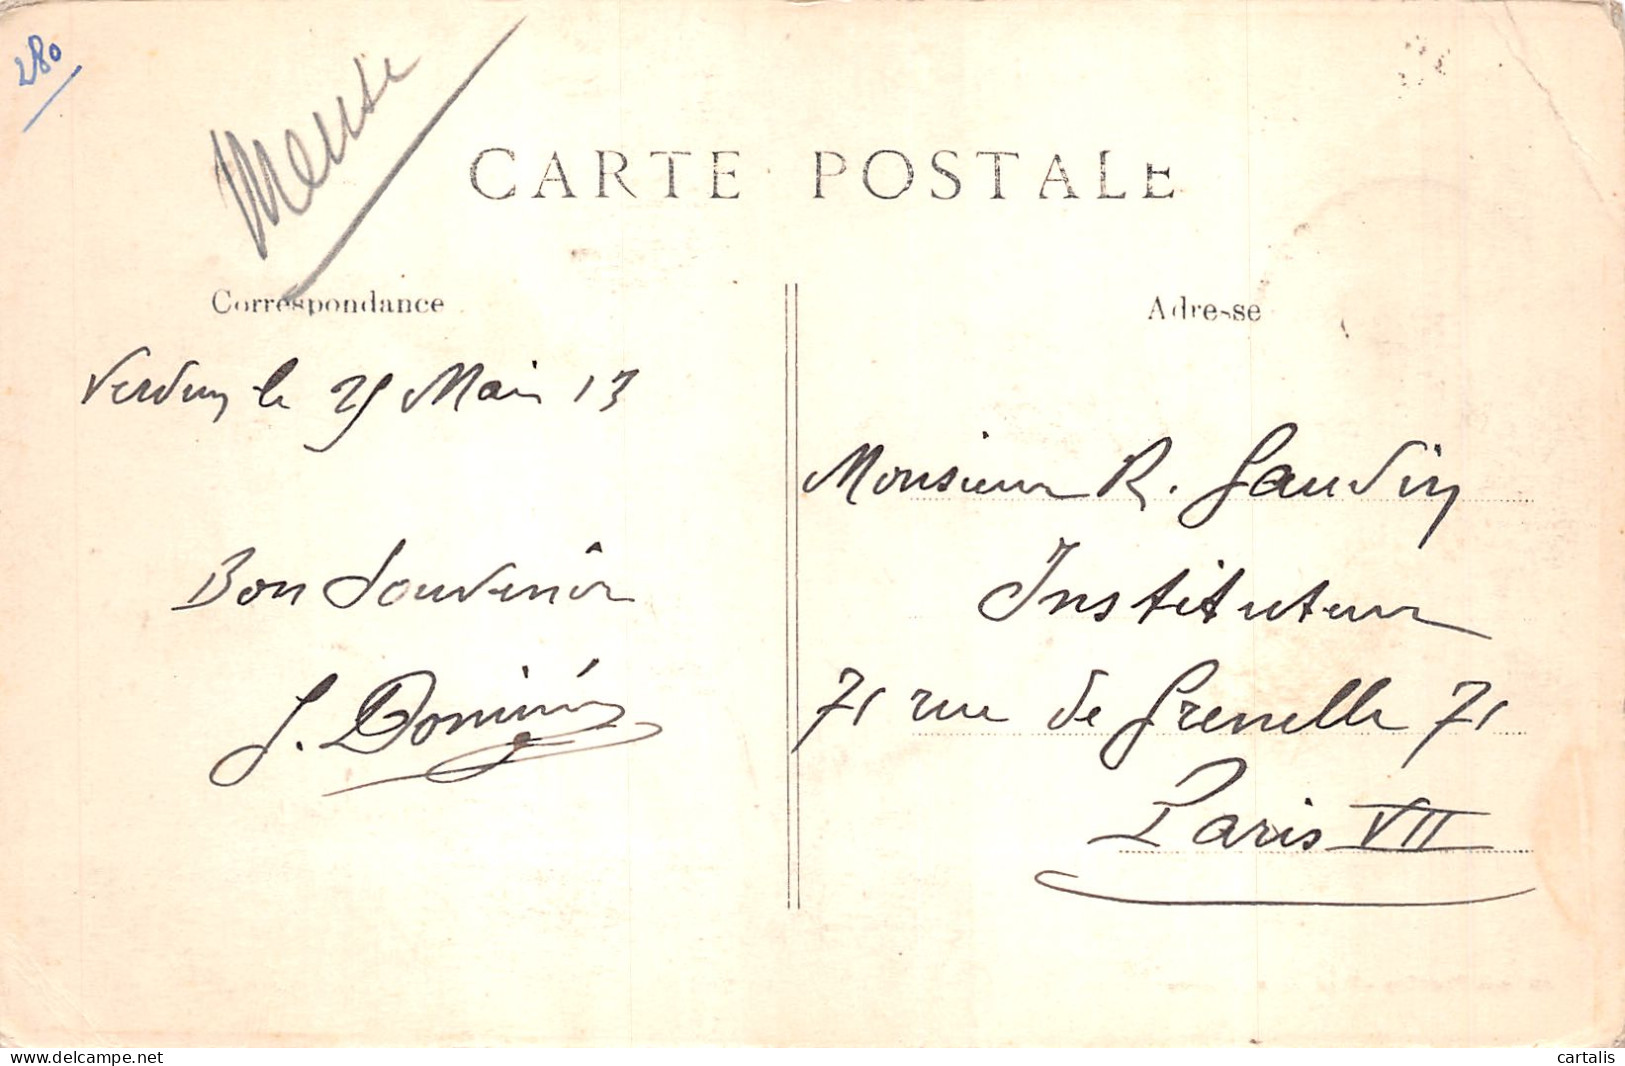 280
Meuse
CARTE POSTALE
Correspondance
Adresse
Verdun le 25 Mai 13
Bon Souvenir
Monsieur R. Gaudin
Instituteur
71 rue de Grenelle 71
Paris VII
delcampe.net
cartalis